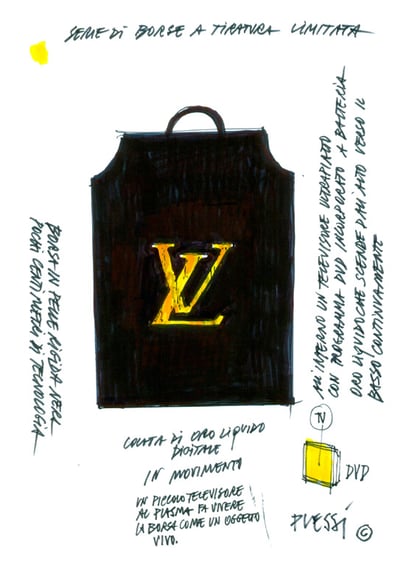 SERIE DI BORSE A TIRATURA LIMITATA
ALL'INTERNO UN TELEVISORE ULTRAPIATTO
CON PROGRAMMA DVD INCORPORATO A BATTERIA
ORO LIQUIDO CHE SCENDE DALL'ALTO VERSO IL
BASSO CONTINUAMENTE
BORSA IN PELLE RIGIDA NERA
POCHI CENTIMETRI DI TECNOLOGIA
LV
COLATA DI ORO LIQUIDO
DIGITALE
IN MOVIMENTO
UN PICCOLO TELEVISORE
AL PLASMA FA VIVERE
LA BORSA COME UN OGGETTO
VIVO.
TV
DVD
PLESSI ©